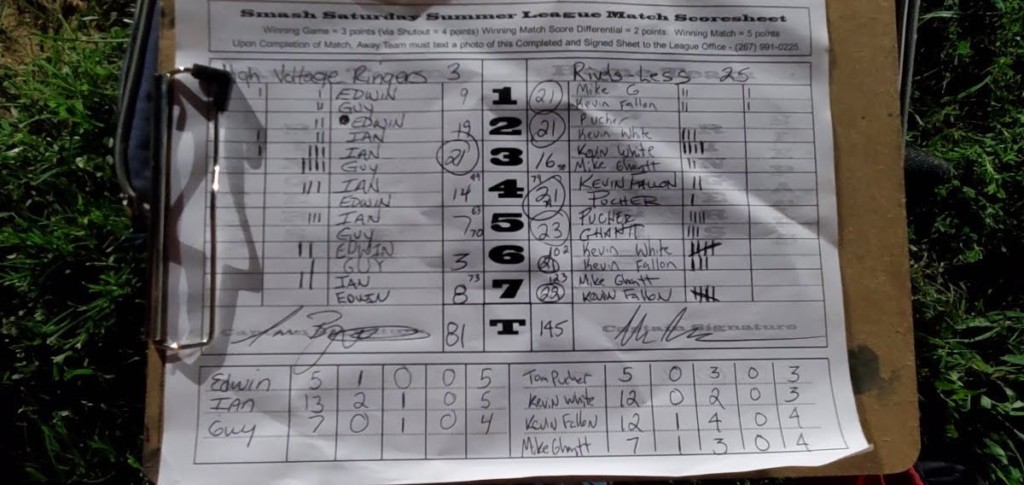 Smash Saturday Summer League Match Scoresheet
Winning Game = 3 points (via Shutout = 4 points) Winning Match Score Differential = 2 points. Winning Match = 5 points
Upon Completion of Match, Away Team must text a photo of this Completed and Signed Sheet to the League Office - (267) 991-0225
High Voltage Ringers 3 Rivets-Less 25
EDWIN 9 1 21 Mike G
GUY Kevin Fallon
EDWIN 19 2 21 Pucher
IAN Kevin White
IAN 21 3 16 Kevin White
GUY Mike Ghaytt
IAN 14 4 21 KEVIN FALLON
EDWIN PUCHER
IAN 7 63 5 23 PUCHER
GUY 70 GHAYTT
EDWIN 3 6 102 21 Kevin White
GUY Kevin Fallon
IAN 8 73 7 123 22 Mike Ghaytt
EDWIN KEVIN FALLON
81 T 145
Signature
Edwin 5 1 0 0 5 Tom Pucher 5 0 3 0 3
IAN 13 2 1 0 5 Kevin White 12 0 2 0 3
Guy 7 0 1 0 4 Kevin Fallon 12 1 4 0 4
Mike Ghaytt 7 1 3 0 4